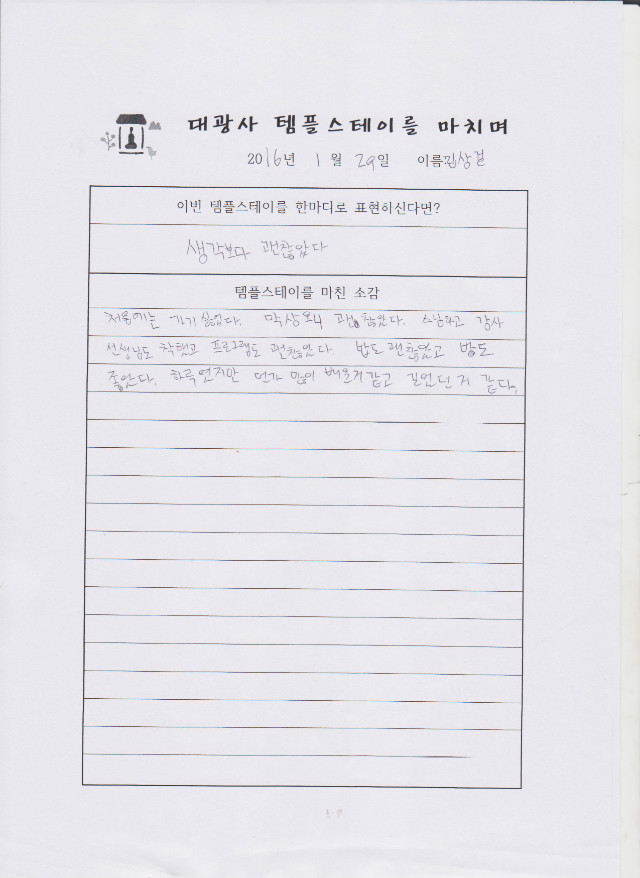 대광사 템플스테이를 마치며
2016년 1월 29일 이름 김상걸
이번 템플스테이를 한마디로 표현하신다면?
생각보다 괜찮았다
템플스테이를 마친 소감
처음에는 가기 싫었다. 막상 오니 괜찮았다. 스님하고 강사
선생님도 착했고 프로그램도 괜찮았다. 밥도 괜찮았고 방도
좋았다. 하루였지만 먼가 많이 배운거 같고 길었던 거 같다.